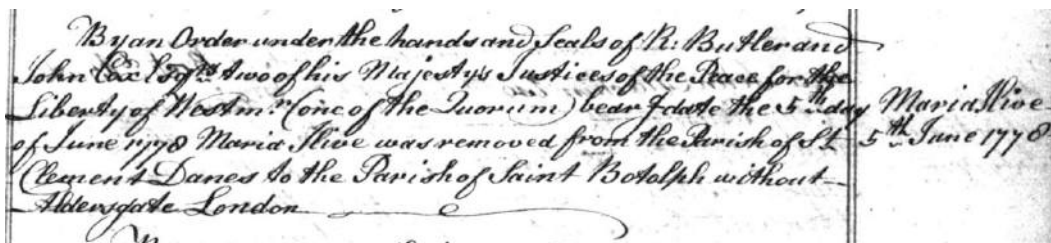 By an Order under the hands and Seals of R: Butler and
John Cox Esqrs. two of his Majesty's Justices of the Peace for the
Liberty of Westmr. (one of the Quorum) bear g date the 5th day
of June 1778 Maria Ilive was removed from the Parish of St.
Clement Danes to the Parish of Saint Botolph without
Aldersgate London
Maria Ilive
5th June 1778